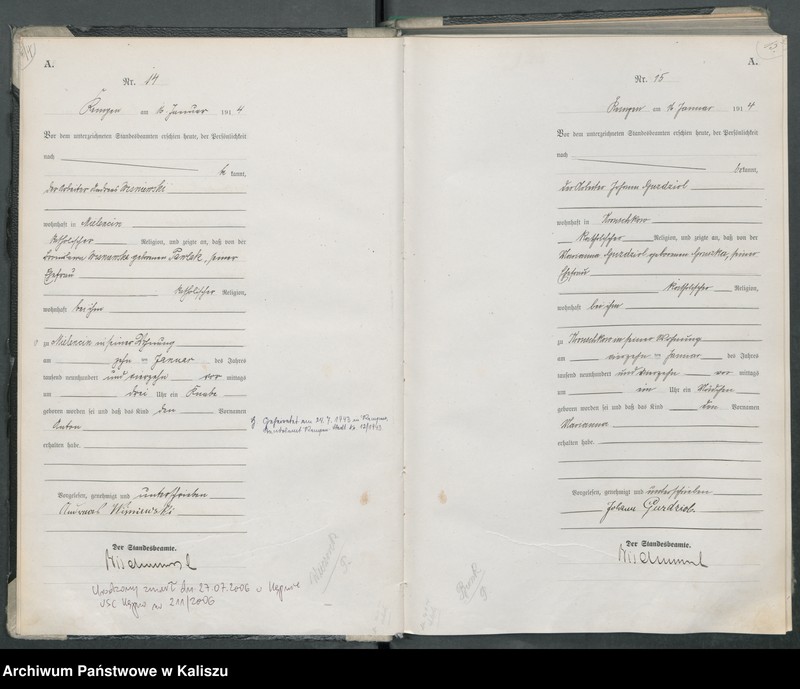 A.
Nr. 14
Kempen am 16 Januar 1914
Vor dem unterzeichneten Standesbeamten erschien heute, der Persönlichkeit
nach
be kannt,
der Arbeiter Andreas Wisniewski
wohnhaft in
katholischer Religion, und zeigte an, daß von der
Wisniewski geborenen Pawlak, seiner
Ehefrau
katholischer Religion,
wohnhaft bei ihm
zu in seiner Wohnung
am zehn ten Januar des Jahres
tausend neunhundert und vierzehn vor mittags
um drei Uhr ein Knabe
geboren worden sei und daß das Kind den Vornamen
Anton
erhalten habe.
Geheiratet am 24.7.1943 in Kempen
Standesamt Kempen
Vorgelesen, genehmigt und unterschrieben
Andreas Wisniewski
Der Standesbeamte.
Urodzony zmarł dn. 27.07.2006 w Kępnie
USC Kępno nr 211/2006
A.
Nr. 15
Kempen am 16 Januar 1914
Vor dem unterzeichneten Standesbeamten erschien heute, der Persönlichkeit
nach
bekannt,
der Arbeiter Johann Gurdziol
wohnhaft in
katholischer Religion, und zeigte an, daß von der
Marianna Gurdziol geborenen seiner
Ehefrau
katholischer Religion,
wohnhaft bei ihm
zu in seiner Wohnung
am vierzehn ten Januar des Jahres
tausend neunhundert und vierzehn vor mittags
um ein Uhr ein Mädchen
geboren worden sei und daß das Kind den Vornamen
Marianna
erhalten habe.
Vorgelesen, genehmigt und unterschrieben
Johann Gurdziol
Der Standesbeamte.
Archiwum Państwowe w Kaliszu